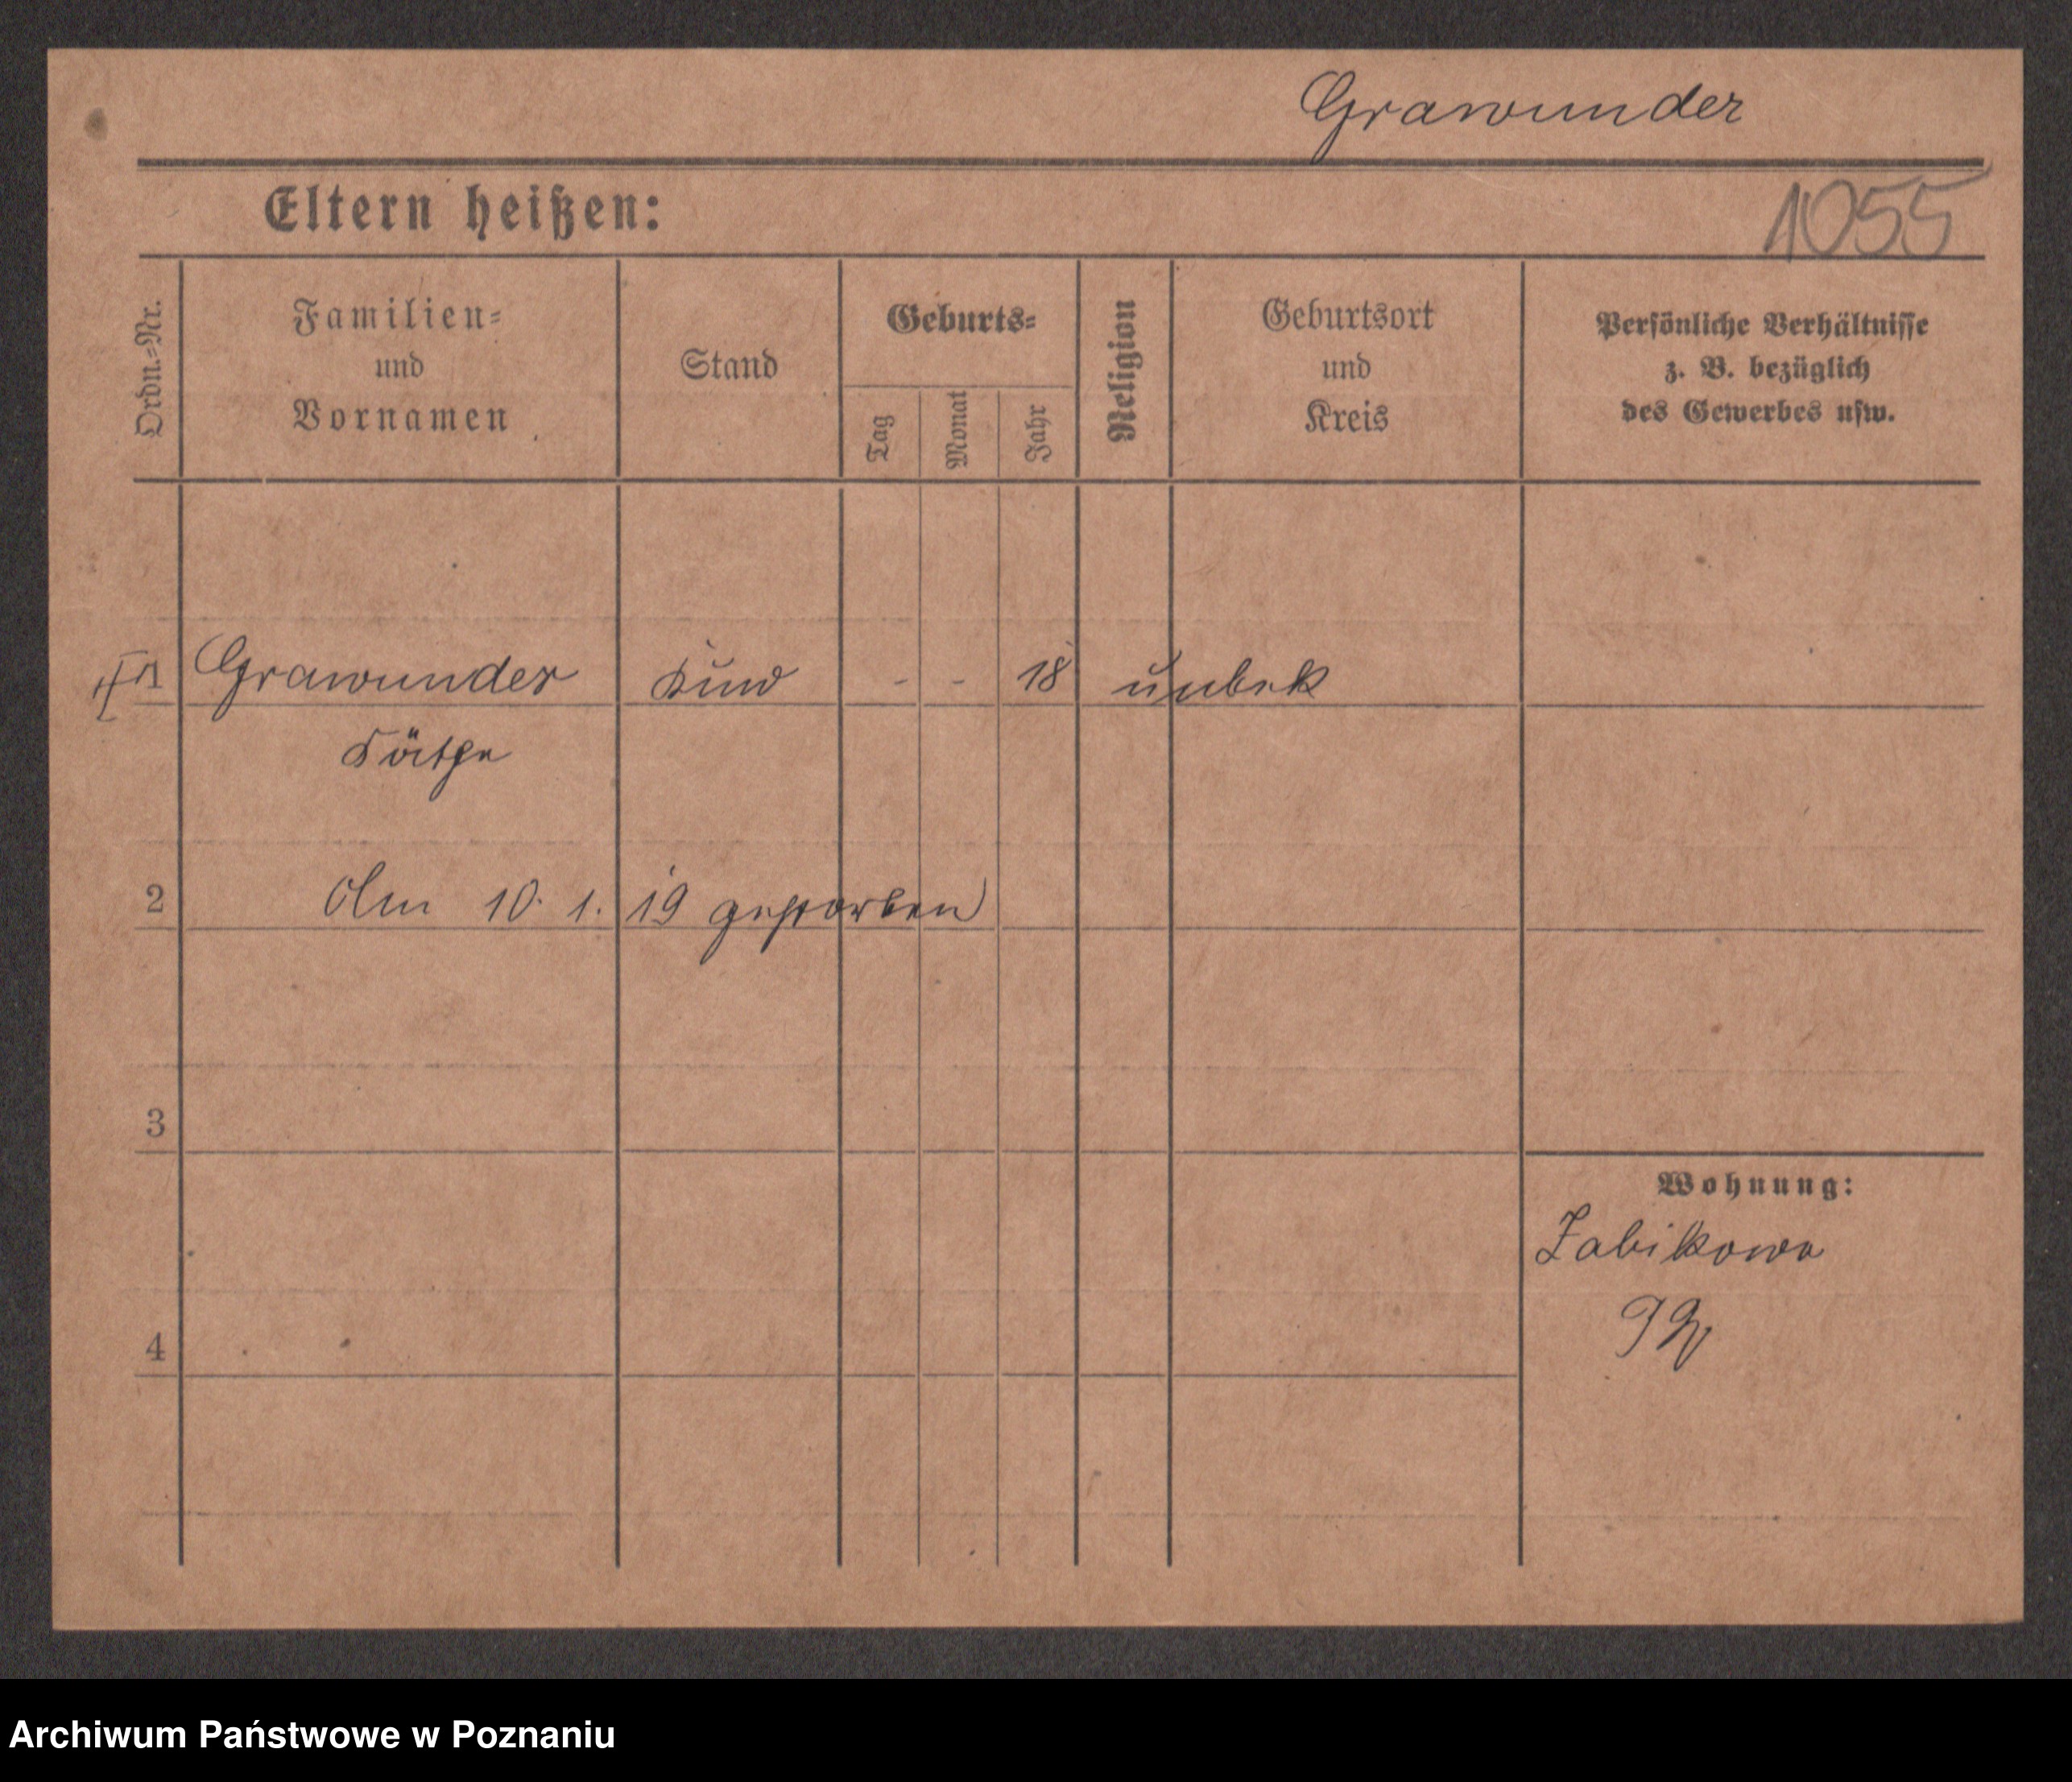 Grawunder
Eltern heißen:
1055
Ordn.-Nr.
Familien-
und
Vornamen
Stand
Geburts-
Tag
Monat
Jahr
Religion
Geburtsort
und
Kreis
Persönliche Verhältnisse
z. B. bezüglich
des Gewerbes usw.
1 Grawunder Kind - - 18 unbek
Käthe
2 Am 10. 1. 19 gestorben
3
Wohnung:
Zabikowo
4
Archiwum Państwowe w Poznaniu